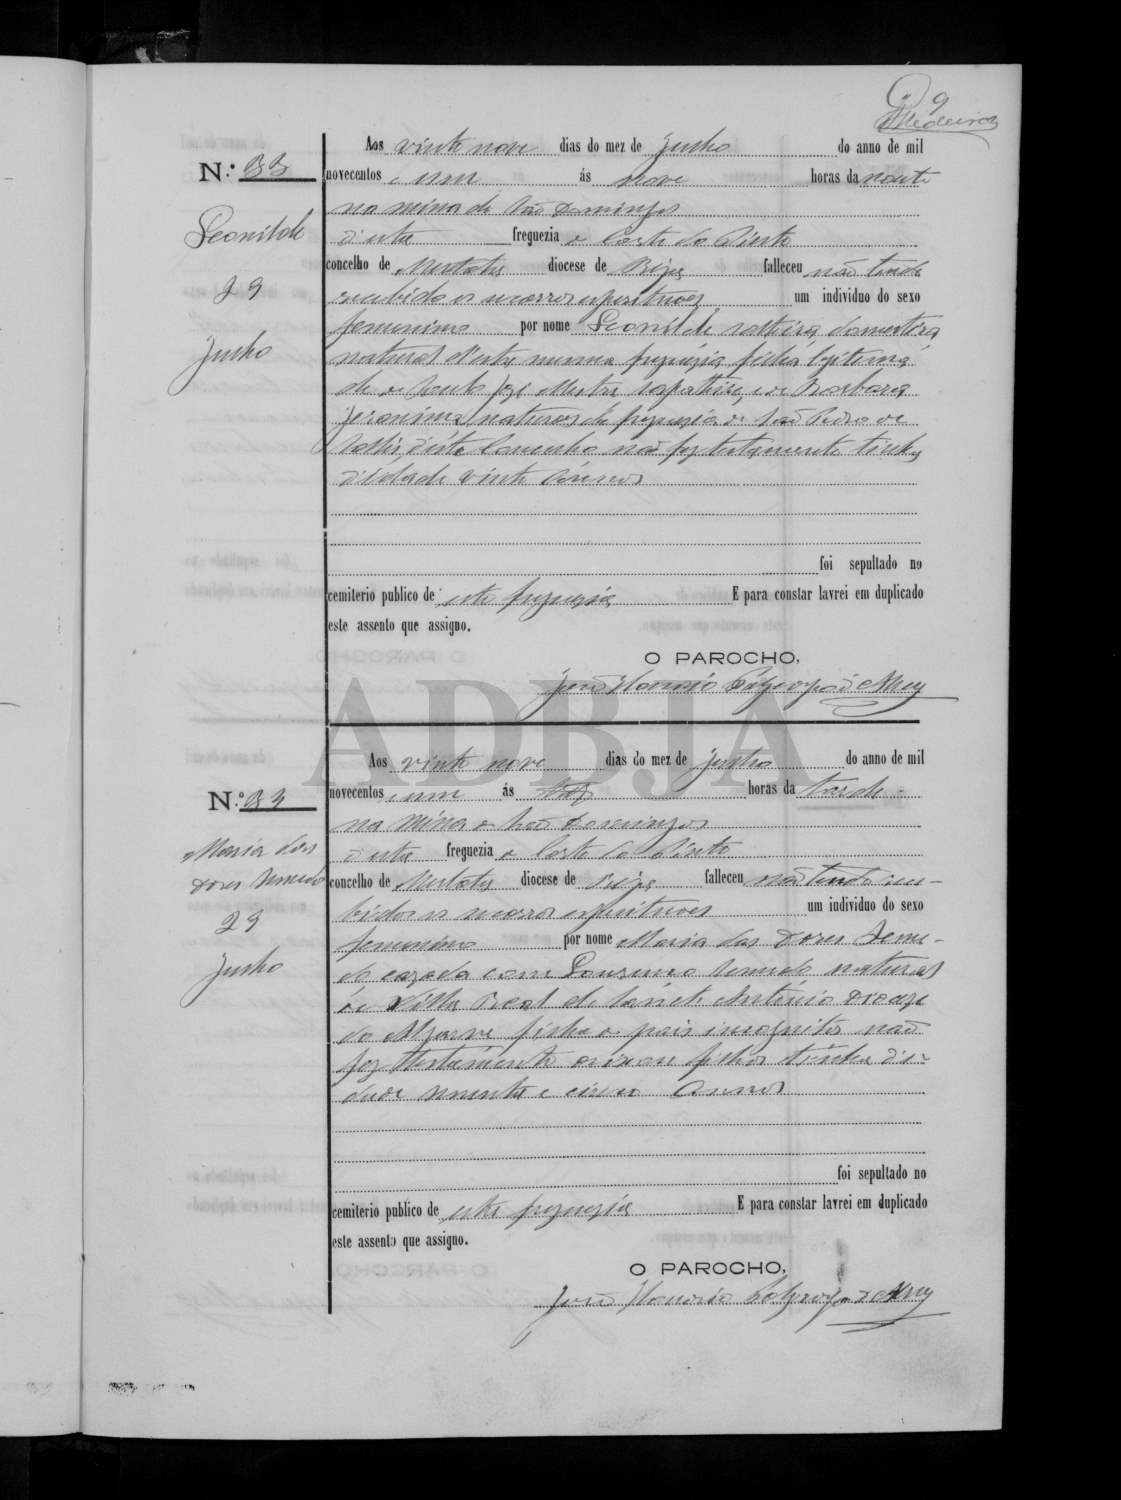 9
Medeiros
Aos vinte nove dias do mez de Junho do anno de mil
N.º 33
novecentos e um ás nove horas da noute
na mina de São Domingos
Leonilde
d'esta freguezia de Corte do Pinto
concelho de Mertola diocese de Beja falleceu não tendo
29
recebido os socorros espirituaes um individuo do sexo
femenino por nome Leonilde solteira, domestica,
Junho
natural d'esta mesma freguezia, filha legitima
de José Mestre e de Barbara
Jeronima naturaes da freguezia de São Pedro de
Solis, d'este Concelho não fez testamento tinha
d'idade vinte annos
foi sepultado no
cemiterio publico de esta freguezia E para constar lavrei em duplicado
este assento que assigno.
O PAROCHO,
ADBJA
Aos vinte nove dias do mez de Junho do anno de mil
N.º 34
novecentos e um ás horas da tarde
na Mina de São Domingos
Maria das
d'esta freguezia de Corte do Pinto
Dores
concelho de Mertola diocese de Beja falleceu não tendo rece-
29
bido os socorros espirituaes um individuo do sexo
Junho
femenino por nome Maria das Dores
cazada com natural
de Villa Real de Santo Antonio
do Algarve filha de pais incognitos não
fez testamento deixou filhos tinha d'i-
dade e cinco annos
foi sepultado no
cemiterio publico de esta freguezia E para constar lavrei em duplicado
este assento que assigno.
O PAROCHO,